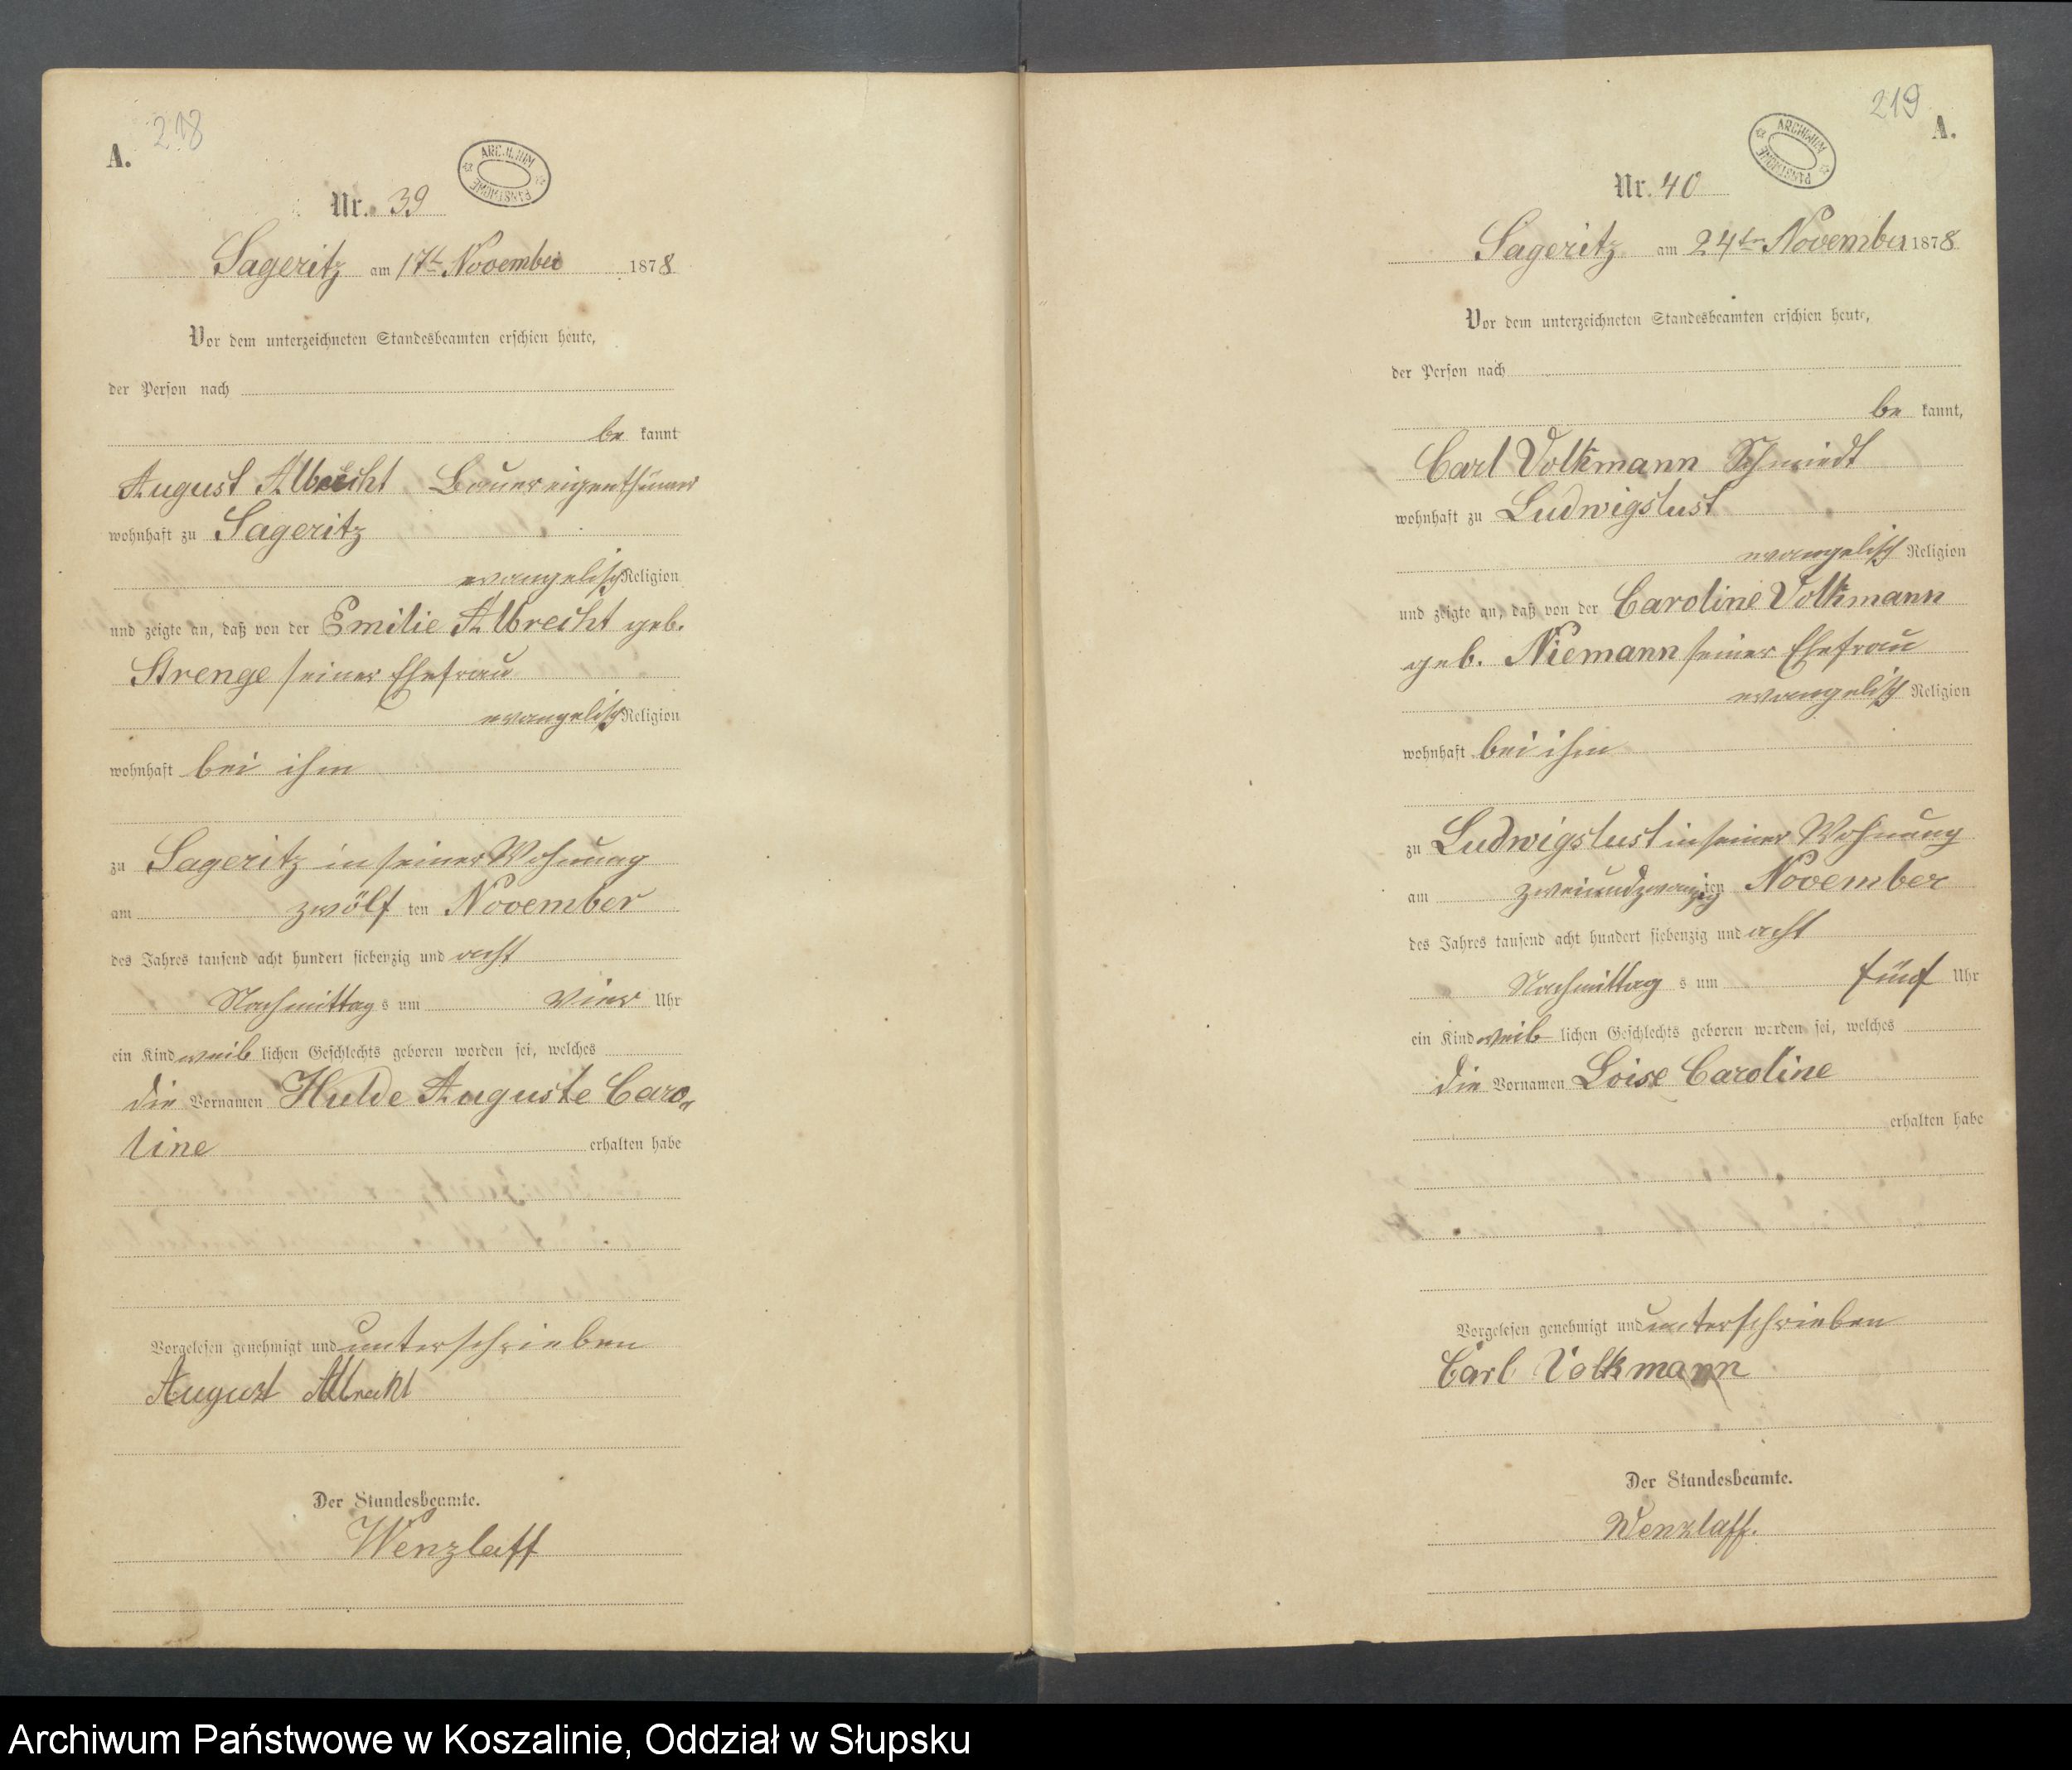 218
A.
ARCHIWUM PAŃSTWOWE
Nr. 39
Sageritz am 17t November 1878
Vor dem unterzeichneten Standesbeamten erschien heute,
der Person nach
be kannt
August Albrecht Bauereigenthümer
wohnhaft zu Sageritz
evangelisch Religion
und zeigte an, daß von der Emilie Albrecht geb.
Strenge seiner Ehefrau
evangelisch Religion
wohnhaft bei ihm
zu Sageritz in seiner Wohnung
am zwölf ten November
des Jahres tausend acht hundert siebenzig und acht
Nachmittag s um vier Uhr
ein Kind weib lichen Geschlechts geboren worden sei, welches
die Vornamen Hulde Auguste Caro„
line erhalten habe
Vorgelesen genehmigt und unterschrieben
August Albrecht
Der Standesbeamte.
Wenzlaff
219
A.
ARCHIWUM PAŃSTWOWE
Nr. 40
Sageritz am 24ten November 1878
Vor dem unterzeichneten Standesbeamten erschien heute,
der Person nach
be kannt,
Carl Volkmann Schmiedt
wohnhaft zu Ludwigslust
evangelisch Religion
und zeigte an, daß von der Caroline Volkmann
geb. Niemann seiner Ehefrau
evangelisch Religion
wohnhaft bei ihm
zu Ludwigslust in seiner Wohnung
am zweiundzwanzig ten November
des Jahres tausend acht hundert siebenzig und acht
Nachmittag s um fünf Uhr
ein Kind weib lichen Geschlechts geboren worden sei, welches
die Vornamen Loise Caroline
erhalten habe
Vorgelesen genehmigt und unterschrieben
Carl Volkmann
Der Standesbeamte.
Wenzlaff.
Archiwum Państwowe w Koszalinie, Oddział w Słupsku